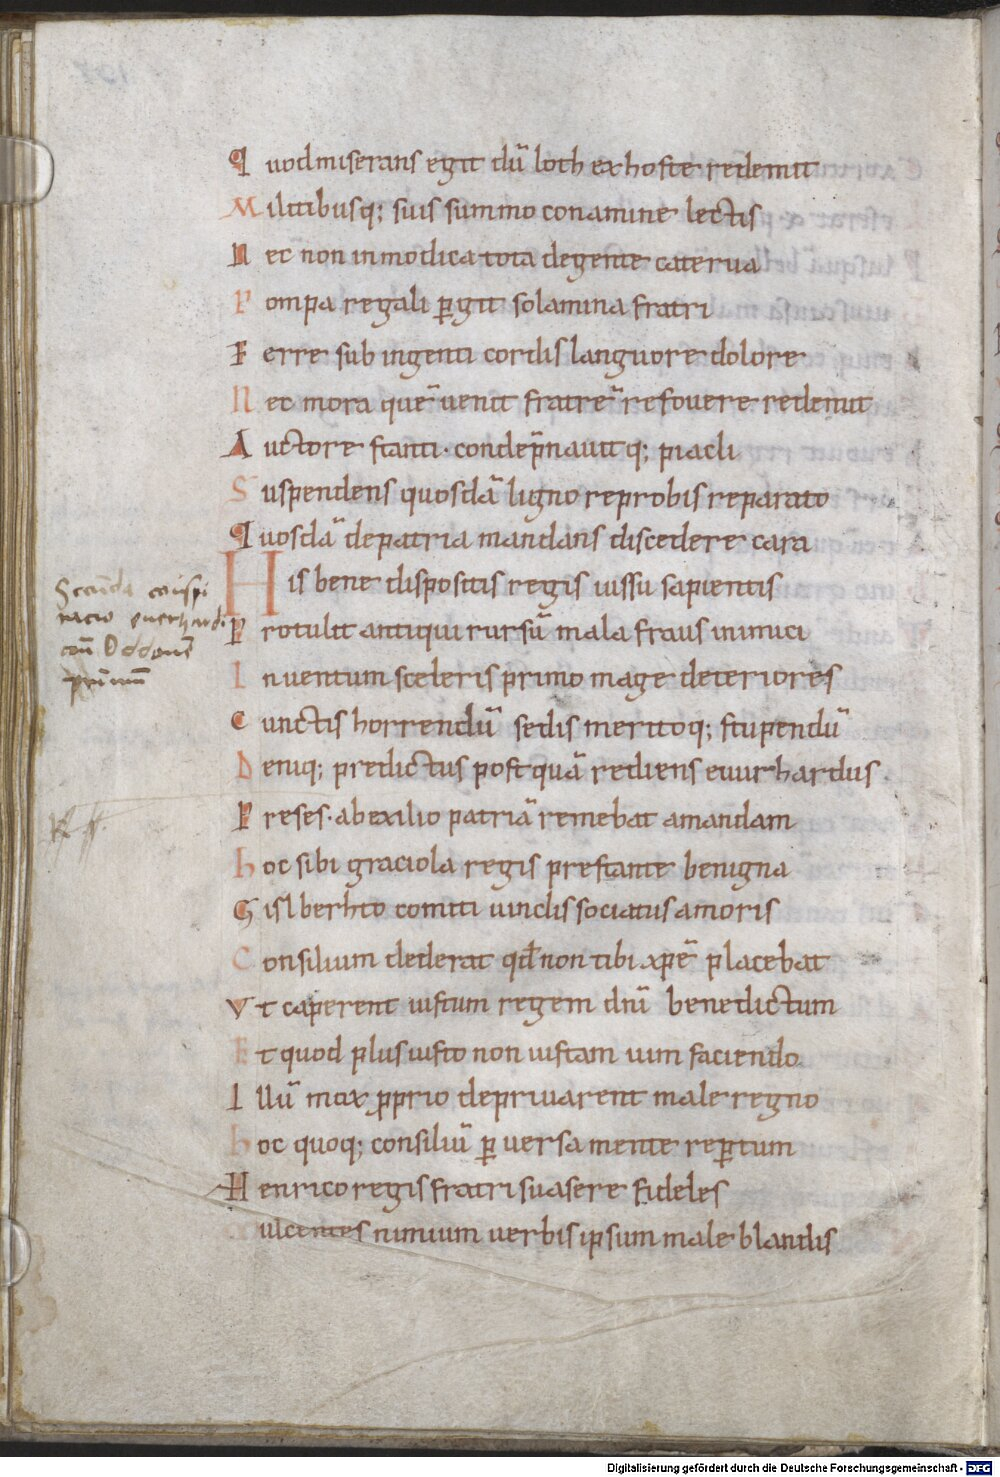 Quod miserans egit dū loth ex hoste redemit
Militibusq; suis summo conamine lectis
Nec non inmodica tota degente caterua
Pompa regali ꝑgit solamina fratri
Ferre sub ingenti cordis languore dolore
Nec mora quē uenit fratrē refouere redemit
Auctore stanti. condēpnauitq; piacli
Suspendens quosdā ligno reprobis reparato
Quosdā de patria mandans discedere cara
His bene dispositis regis iussu sapientis
Protulit antiqui rursū mala fraus inimici
Inuentum sceleris primo mage deterioris
Cunctis horrendū sedis meritoq; stupendū
Deniq; predictus postquā rediens euurhardus.
Preses. ab exilio patriā remebat amandam
hoc sibi graciola regis prestante benigna
Gislberhto comiti uinclis sociatus amoris
Consilium dederat qđ non tibi xp̄e placebat
Vt caperent iustum regem dn̄i benedictum
Et quod plus iusto non iustam uim faciendo
Illū mox ꝓprio depriuarent male regno
hoc quoq; consiliū ꝑuersa mente reꝑtum
Henrico regis fratri suasere fideles
ulcentes nimium uerbis ipsum male blandis
Secūda cōnspi
racio euerhardi
cū Oddonē
primū
Digitalisierung gefördert durch die Deutsche Forschungsgemeinschaft - DFG